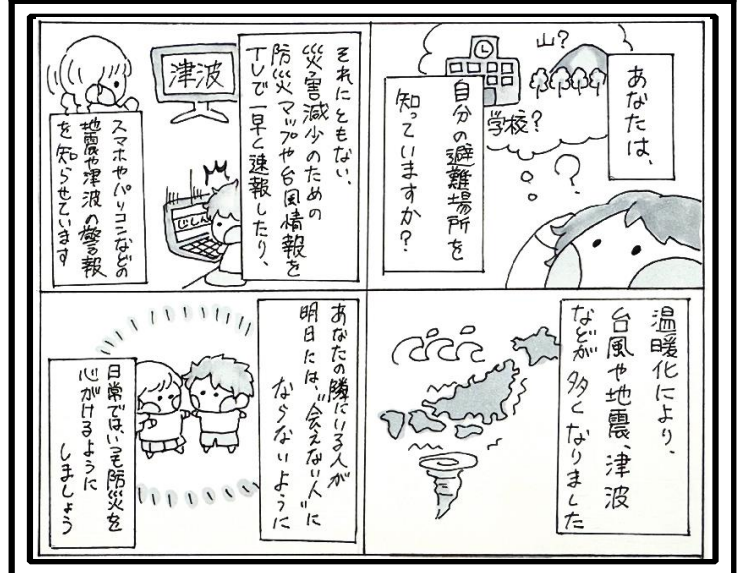 あなたは、
山?
学校?
自分の避難場所を
知っていますか?
?
温暖化により、
台風や地震、津波
などが多くなりました
それにともない、
災害減少のための
防災マップや台風情報を
TVで一早く速報したり、
津波
じしん
スマホやパソコンなどの
地震や津波の警報
を知らせています
あなたの隣にいる人が
明日には、"会えない人"に
ならないように
日常では、いつも防災を
心がけるように
しましょう